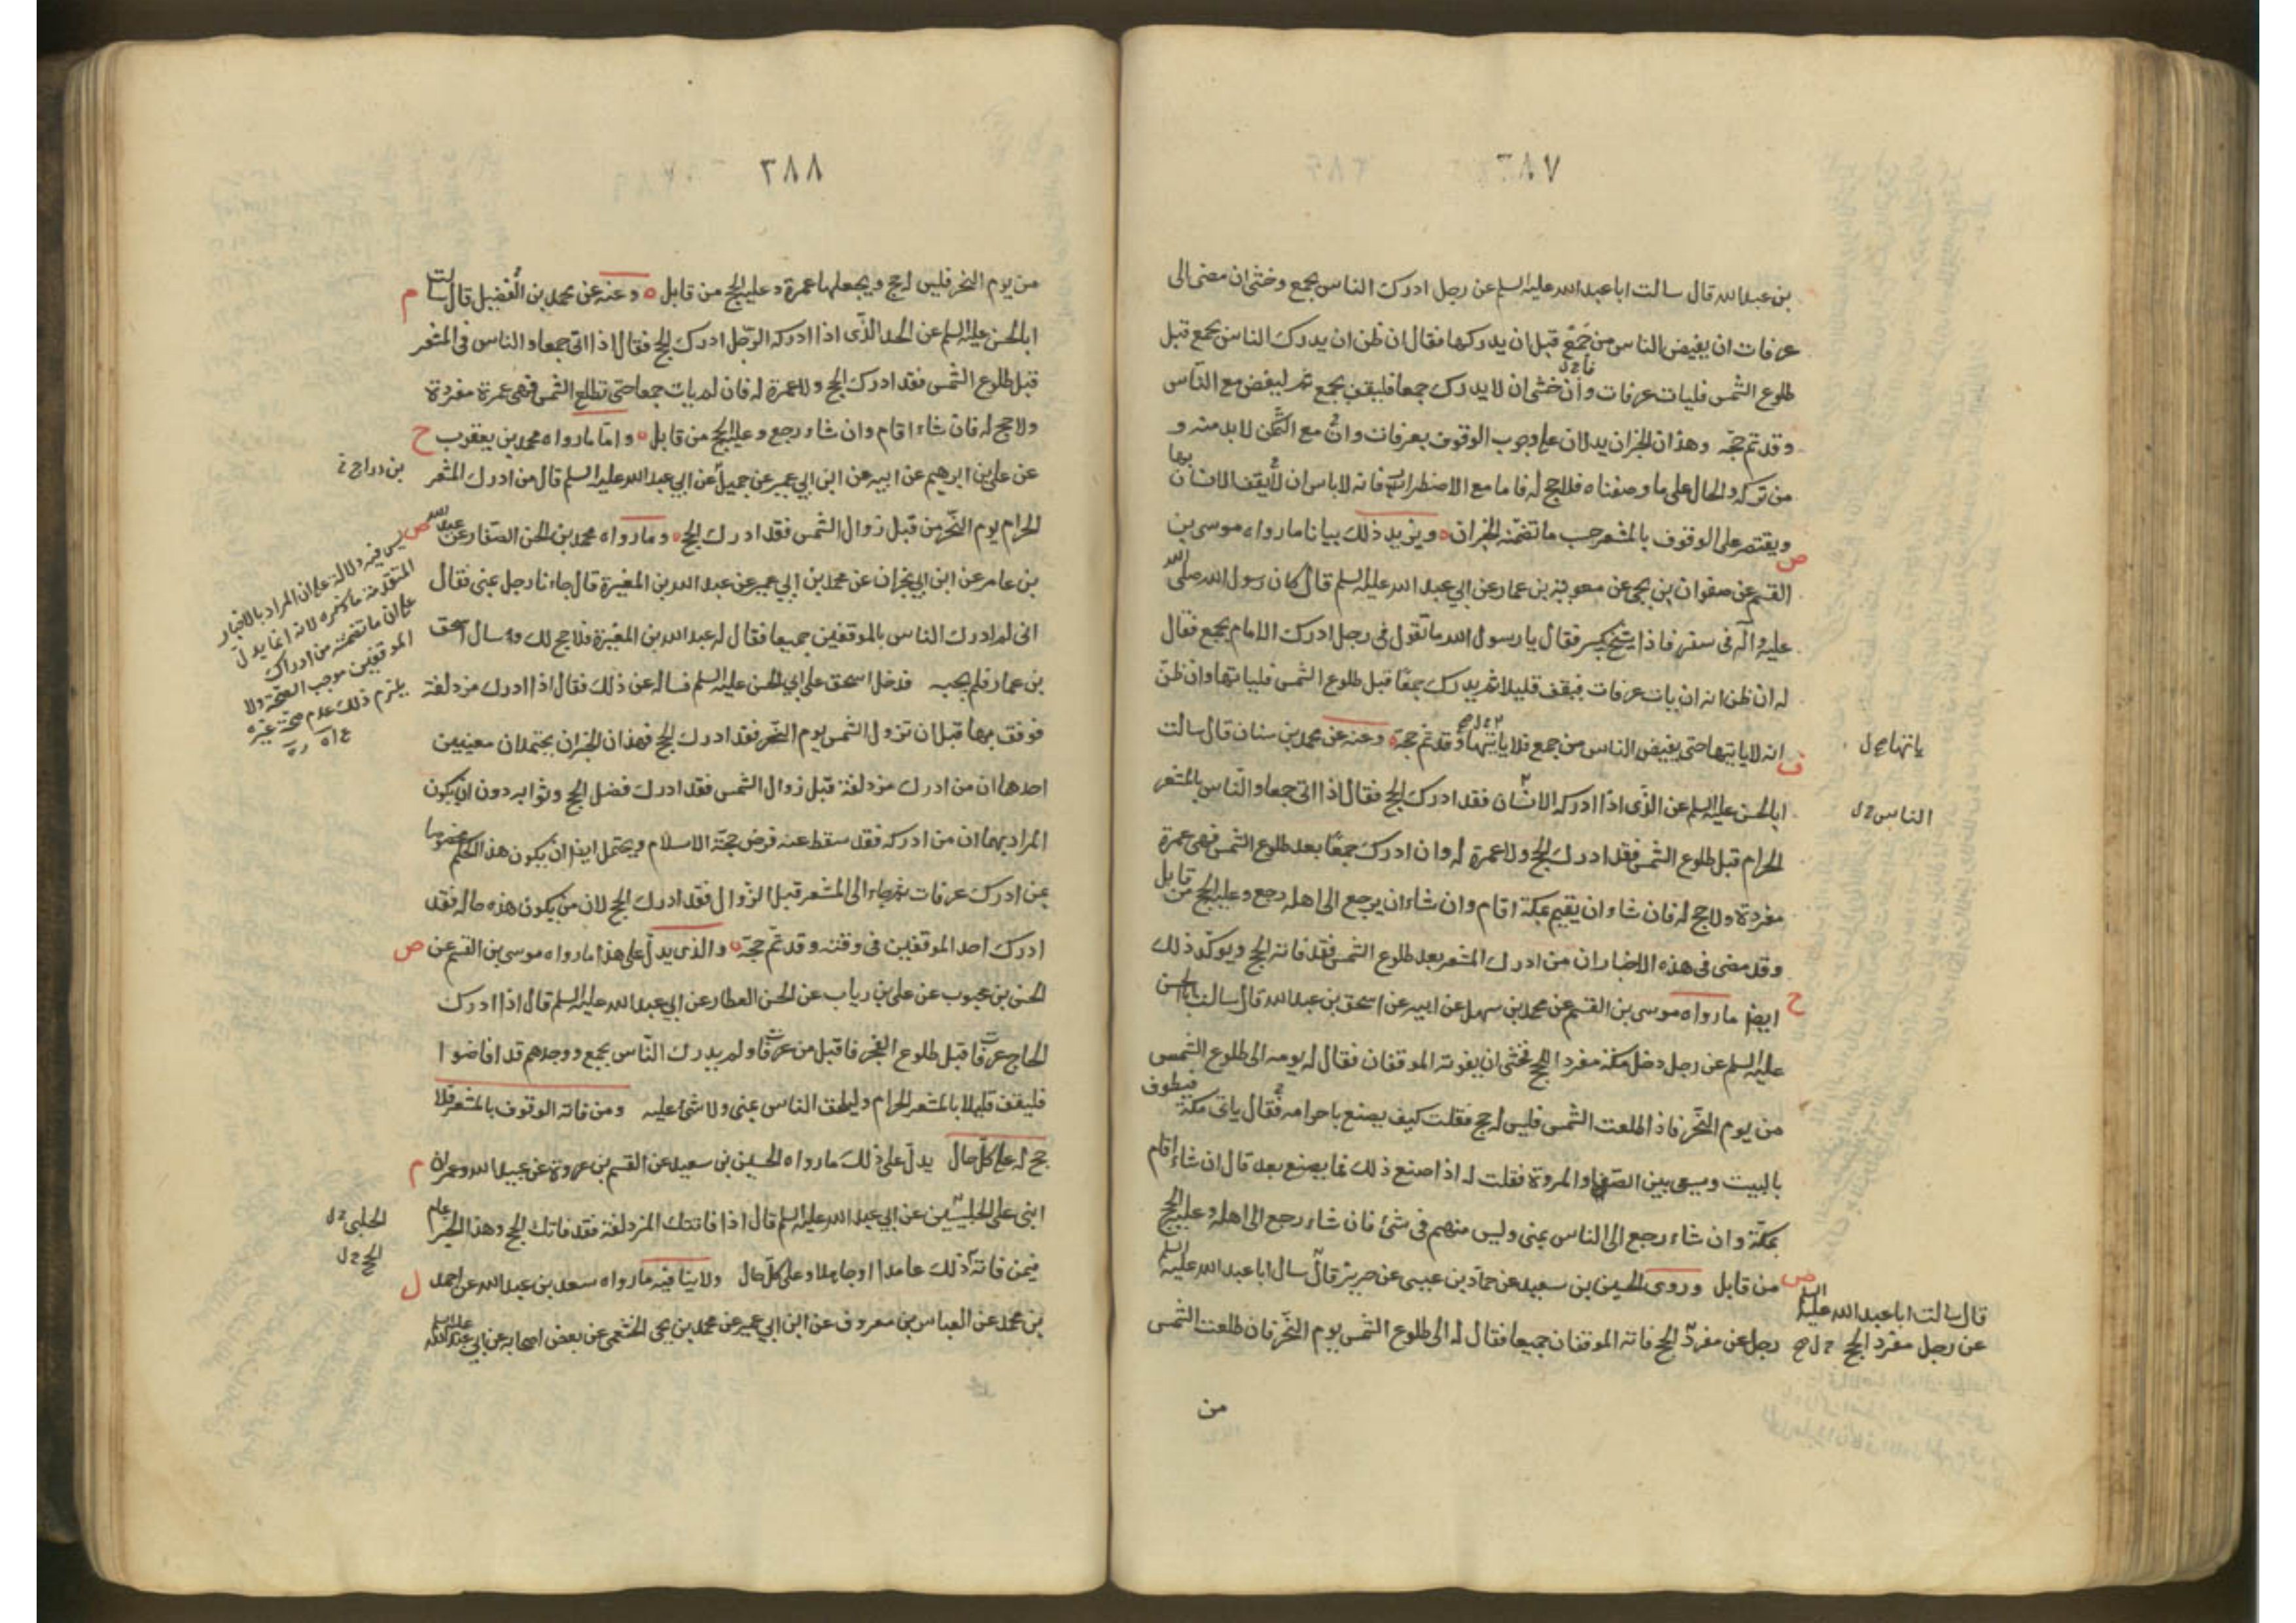 ٣٨٧
بن عبدالله قال سالت اباعبدالله عليه السلم عن رجل ادرك الناس بجمع وخشى ان مضى الى
عرفات ان يفيض الناس من جمع قبل ان يدركها فقال ان ظن ان يدرك الناس بجمع قبل
طلوع الشمس فليات عرفات وان خشى ان لا يدرك جمعا فليقف بجمع ثم ليفض مع الناس
وقد تم حجه وهذان الخبران يدلان على وجوب الوقوف بعرفات وانه مع التمكن لا بد منه و
من تركه والحال على ما وصفناه فلا حج له فاما مع الاضطرار فانه لا باس ان لا يقف الانسان بها
ويقتصر على الوقوف بالمشعر حسب ما تضمنه الخبران ويزيد ذلك بيانا ما رواه موسى بن
القسم عن صفوان بن يحيى عن معوية بن عمار عن ابي عبدالله عليه السلم قال كان رسول الله صلى الله
عليه واله فى سفر فاذا شيخ كبير فقال يا رسول الله ما تقول في رجل ادرك الامام بجمع فقال
له ان ظن انه ان يات عرفات فيقف قليلا ثم يدرك جمعا قبل طلوع الشمس فلياتها وان ظن
انه لا ياتيها حتى يفيض الناس من جمع فلا ياتها وقد تم حجه وعنه عن محمد بن سنان قال سالت
ياتها ح ل
ابا الحسن عليه السلم عن الذى اذا ادركه الانسان فقد ادرك الحج فقال اذا اتى جمعا والناس بالمشعر
الناس ح ل
الحرام قبل طلوع الشمس فقد ادرك الحج ولا عمرة له وان ادرك جمعا بعد طلوع الشمس فهى عمرة
مفردة ولا حج له فان شاء ان يقيم بمكة اقام وان شاء ان يرجع الى اهله رجع وعليه الحج من قابل
وقد مضى فى هذه الاخبار ان من ادرك المشعر بعد طلوع الشمس فقد فاته الحج ويوكد ذلك
ايضا ما رواه موسى بن القسم عن محمد بن سهل عن ابيه عن اسحق بن عبدالله قال سالت ابا الحسن
عليه السلم عن رجل دخل مكة مفرد الحج فخشى ان يفوته الموقفان فقال له يومه الى طلوع الشمس
من يوم النحر فاذا طلعت الشمس فليس له حج فقلت كيف يصنع باحرامه فقال ياتى مكة فيطوف
بالبيت ويسعى بين الصفا والمروة فقلت له اذا صنع ذلك فما يصنع بعد قال ان شاء اقام
بمكة وان شاء رجع الى الناس بمنى وليس منهم في شئ فان شاء رجع الى اهله وعليه الحج
من قابل وروى الحسين بن سعيد عن حماد بن عيسى عن حريز قال سال اباعبدالله عليه السلم
قال سالت اباعبدالله عليه السلم
عن رجل مفرد الحج
رجل عن مفرد الحج فاته الموقفان جميعا فقال له الى طلوع الشمس يوم النحر فان طلعت الشمس
من
٣٨٨
من يوم النحر فليس له حج ويجعلها عمرة وعليه الحج من قابل وعنه عن محمد بن الفضيل قال سالت
ابا الحسن عليه السلم عن الحد الذى اذا ادركه الرجل ادرك الحج فقال اذا اتى جمعا والناس فى المشعر
قبل طلوع الشمس فقد ادرك الحج ولا عمرة له فان لم يات جمعا حتى تطلع الشمس فهى عمرة مفردة
ولا حج له فان شاء اقام وان شاء رجع وعليه الحج من قابل واما ما رواه محمد بن يعقوب
عن على بن ابرهيم عن ابيه عن ابن ابي عمير عن جميل عن ابي عبدالله عليه السلم قال من ادرك المشعر
بن دراج
الحرام يوم النحر من قبل زوال الشمس فقد ادرك الحج وما رواه محمد بن الحسن الصفار عن عبدالله
بن عامر عن ابن ابي نجران عن محمد بن ابي عمير عن عبدالله بن المغيرة قال جاءنا رجل بمنى فقال
انى لم ادرك الناس بالموقفين جميعا فقال له عبدالله بن المغيرة فلا حج لك وسال اسحق
بن عمار فلم يجبه فدخل اسحق على ابي الحسن عليه السلم فساله عن ذلك فقال اذا ادرك مزدلفة
فوقف بها قبل ان تزول الشمس يوم النحر فقد ادرك الحج فهذان الخبران يحتملان معنيين
احدهما ان من ادرك مزدلفة قبل زوال الشمس فقد ادرك فضل الحج وثوابه دون ان يكون
المراد بهما ان من ادركه فقد سقط عنه فرض حجة الاسلام ويحتمل ايضا ان يكون هذا الحكم مخصوصا
بمن ادرك عرفات ثم جاء الى المشعر قبل الزوال فقد ادرك الحج لان من يكون هذه حاله فقد
ادرك احد الموقفين فى وقته وقد تم حجه والذى يدل على هذا ما رواه موسى بن القسم عن
الحسن بن محبوب عن على بن رياب عن الحسن العطار عن ابي عبدالله عليه السلم قال اذا ادرك
الحاج عرفات قبل طلوع الفجر فاقبل من عرفات ولم يدرك الناس بجمع ووجدهم قد افاضوا
فليقف قليلا بالمشعر الحرام وليلحق الناس بمنى ولا شئ عليه ومن فاته الوقوف بالمشعر فلا
حج له على كل حال يدل على ذلك ما رواه الحسين بن سعيد عن القسم بن عروة عن عبيدالله وعمران
ابنى على الحلبيين عن ابي عبدالله عليه السلم قال اذا فاتتك المزدلفة فقد فاتك الحج وهذا الخبر عام
الحلبي ح ل
فيمن فاته ذلك عامدا او جاهلا وعلى كل حال ولا ينافيه ما رواه سعد بن عبدالله عن احمد
الحج ح ل
بن محمد عن العباس بن معروف عن ابن ابي عمير عن محمد بن يحيى الخثعمى عن بعض اصحابه عن ابي عبدالله عليه السلم
ليس فيه دلالة على ان المراد بالاخبار
المتقدمة ما ذكره لانه انما يدل
على ان ما تضمنه من ادراك
الموقفين موجب الصحة ولا
يلزم ذلك عدم صحة غيره